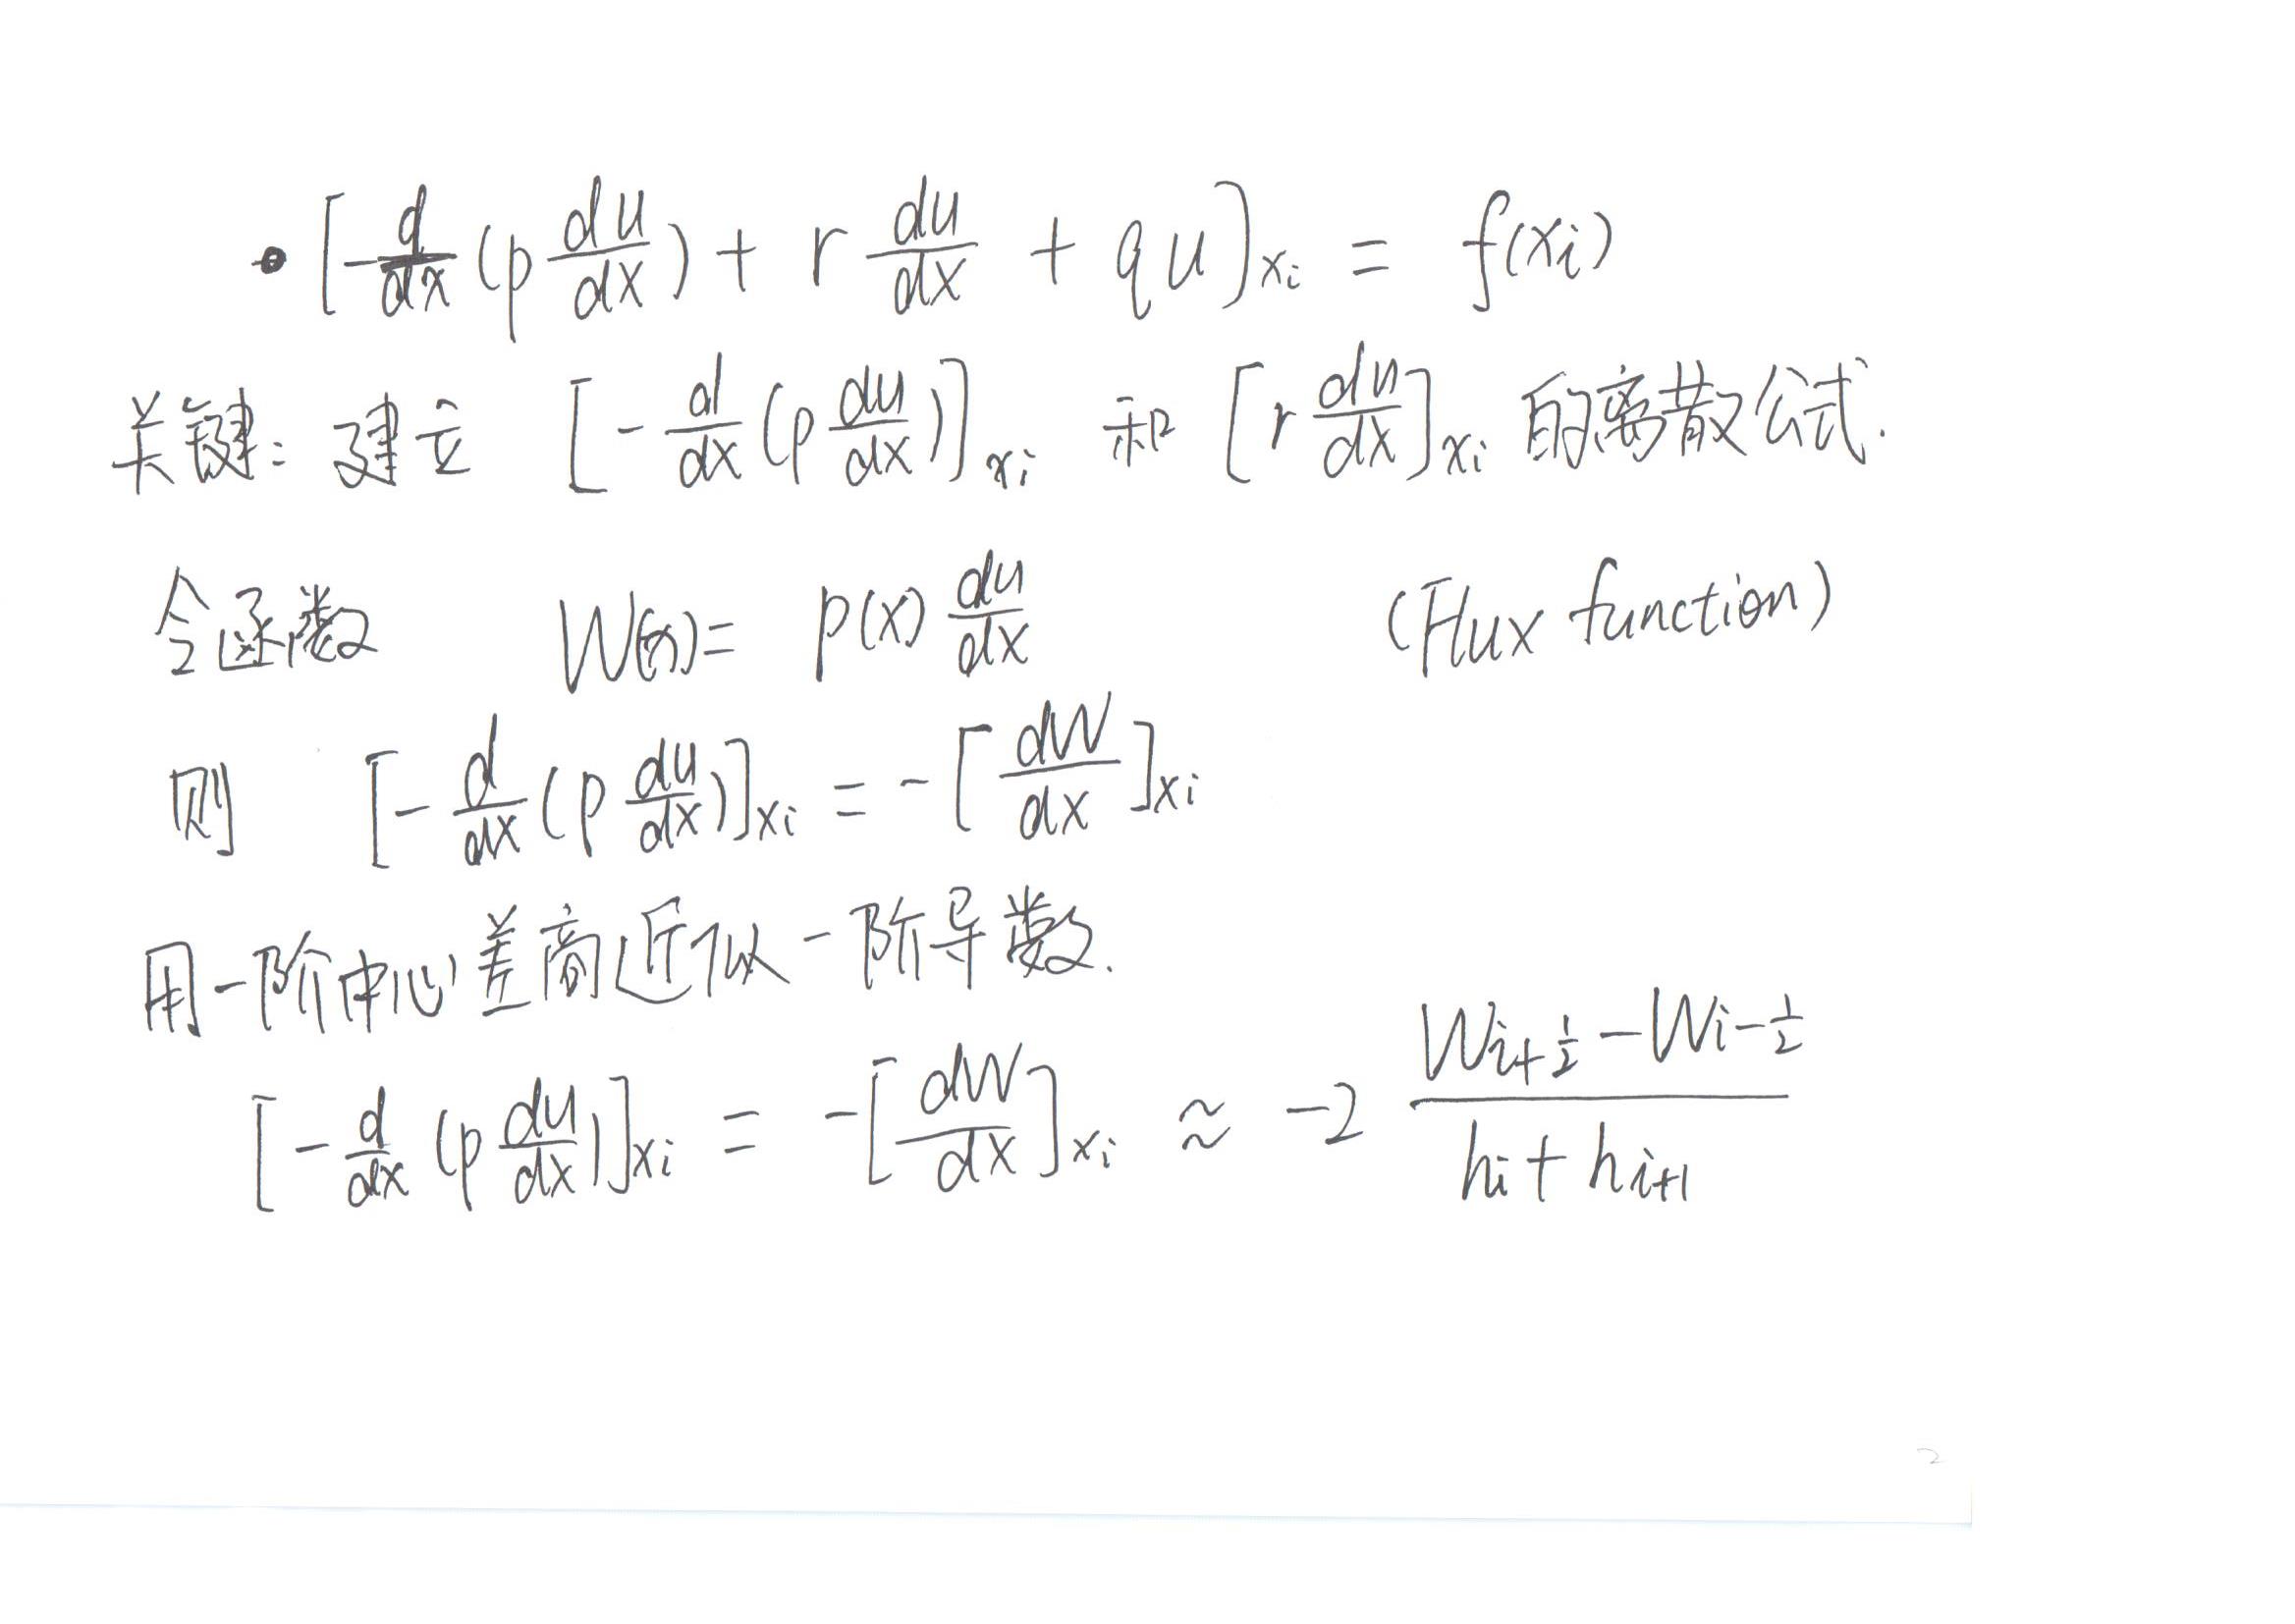 • [-d/dx (p du/dx) + r du/dx + qu]_{x_i} = f(x_i)
关键: 建立 [-d/dx (p du/dx)]_{x_i} 和 [r du/dx]_{x_i} 的离散公式.
令函数 W(x) = p(x) du/dx (Flux function)
则 [-d/dx (p du/dx)]_{x_i} = -[dW/dx]_{x_i}
用一阶中心差商近似一阶导数.
[-d/dx (p du/dx)]_{x_i} = -[dW/dx]_{x_i} ≈ -2 (W_{i+1/2} - W_{i-1/2})/(h_i + h_{i+1})
2